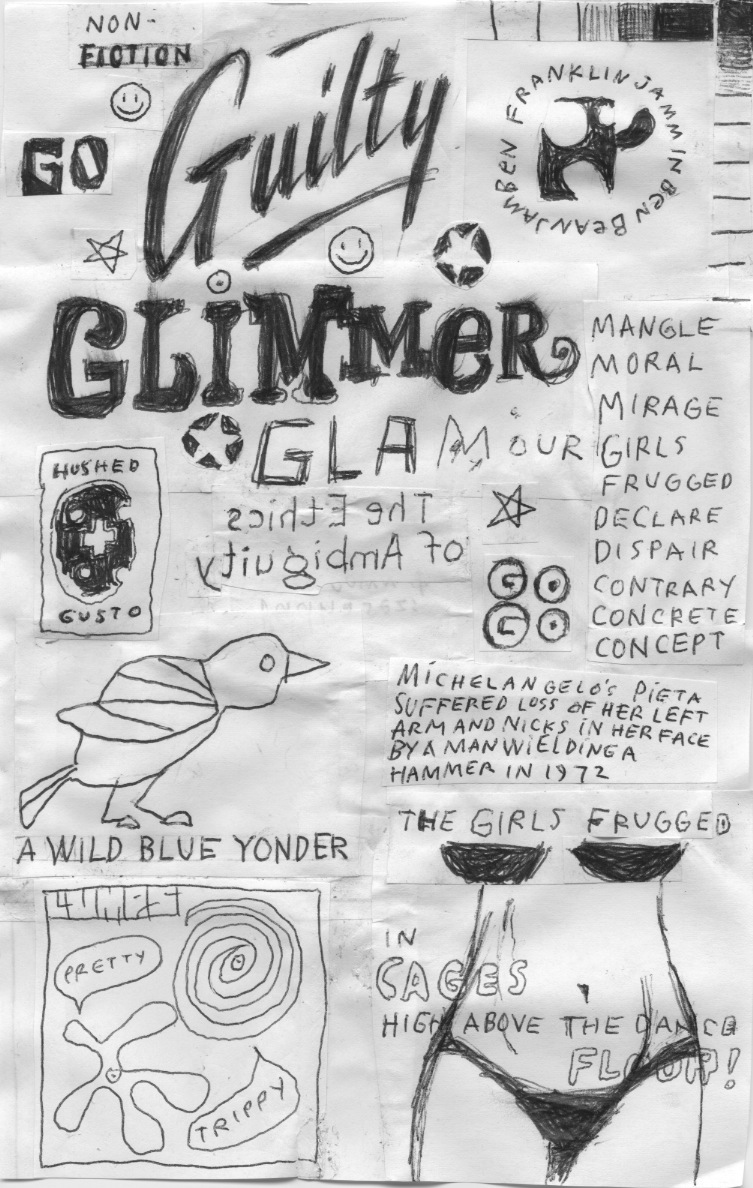 NON-
FICTION
GO
Guilty
BEN FRANKLIN JAMM IN BEN BEANJAM
GLiMMeR
GLAMOUR
MANGLE
MORAL
MIRAGE
GIRLS
FRUGGED
DECLARE
DISPAIR
CONTRARY
CONCRETE
CONCEPT
HUSHED
GUSTO
The Ethics
of Ambiguity
GO
GO
MiCHELANGELO'S PiETA
SUFFERED LOSS OF HER LEFT
ARM AND NICKS IN HER FACE
BY A MAN WiELDING A
HAMMER IN 1972
A WILD BLUE YONDER
THE GIRLS FRUGGED
IN
CAGES
HIGH ABOVE THE DANCE
FLOOR!
PRETTY
TRIPPY